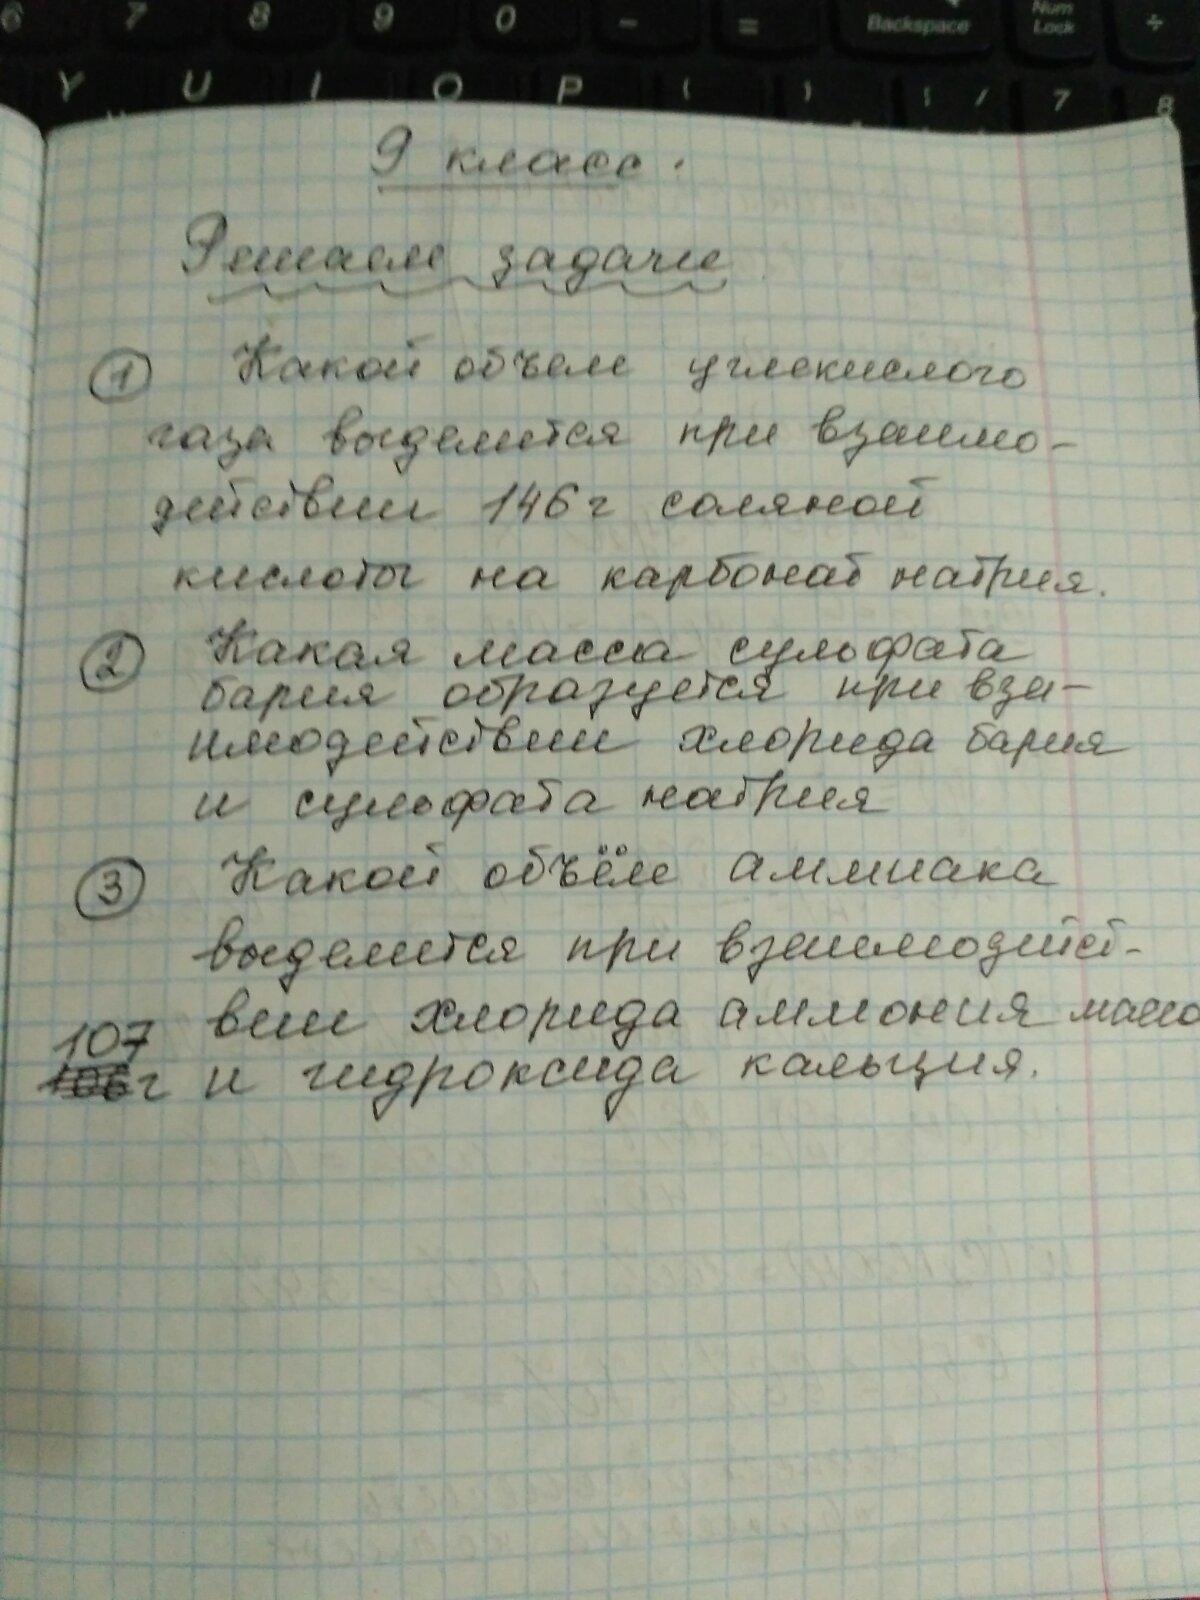 6 7 8 9 0 - = Backspace Num Lock ÷
Y U I O P { } [ / 7 8
9 класс.
Решаем задачи
1 Какой объем углекислого
газа выделится при взаимо-
действии 146 г соляной
кислоты на карбонат натрия.
2 Какая масса сульфата
бария образуется при вза-
имодействии хлорида бария
и сульфата натрия
3 Какой объём аммиака
выделится при взаимодейст-
вии хлорида аммония масс
107
г и гидроксида кальция.